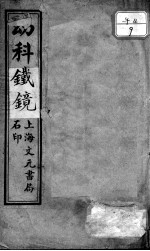 幼科鐵鏡
上海文元書局
石印
9